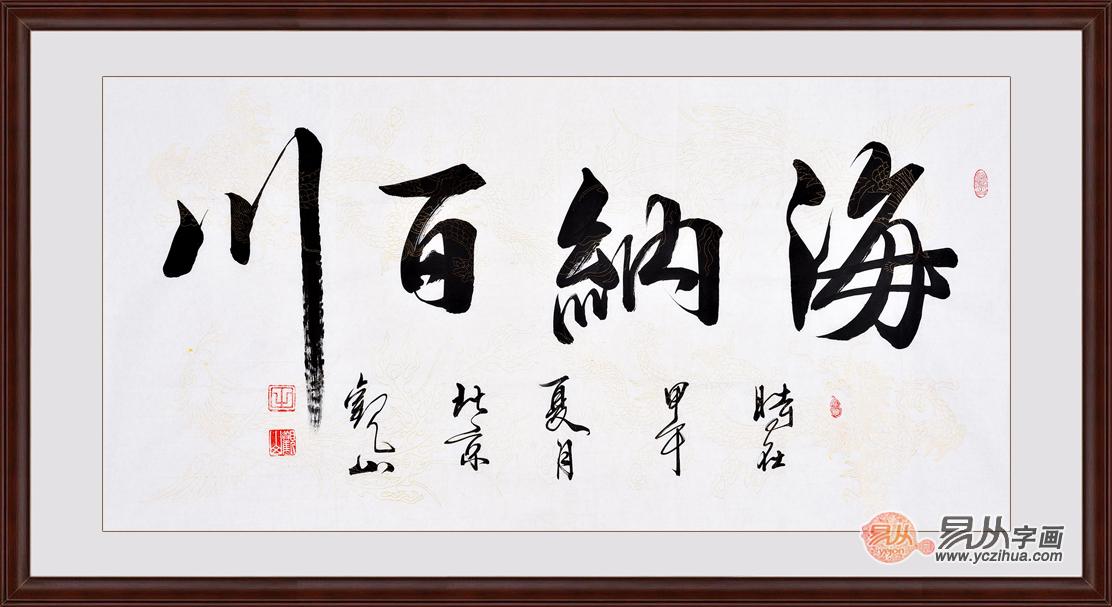 海納百川
時在
甲午
夏月
北京
觀山
易从
yigon
易从字画
www.yczihua.com